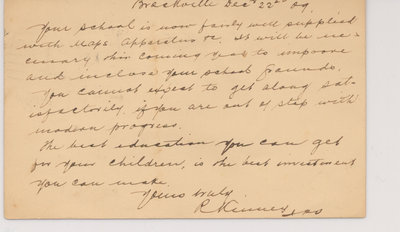 Brockville Dec 22nd 09.
Your school is now fairly well supplied
with Maps Apparatus &c. It will be ne-
cessary this coming year to improve
and inclose your school Grounds.
You cannot expect to get along sat-
isfactorily if you are out of step with
modern progress.
The best education you can get
for your children, is the best investment
you can make.
Yours truly
R Kinney IPS